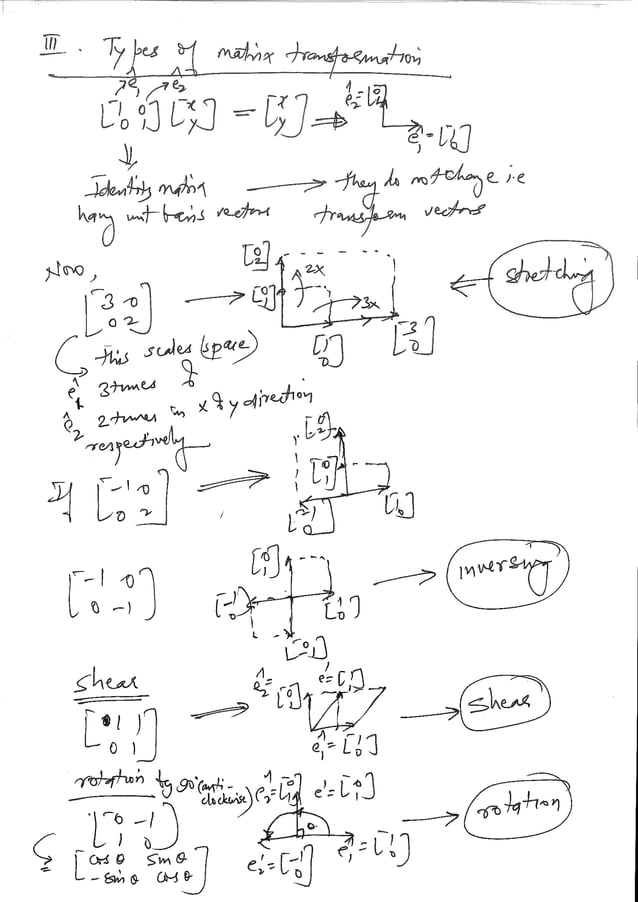 III. Types of matrix transformation
ê₁ ê₂
[1 0; 0 1] [x; y] = [x; y] ⇒ ê₂ = [0; 1] ê₁ = [1; 0]
⇓
Identity matrix → they do not change i.e
havg unit basis vectors transform vectors
Now,
[3 0; 0 2] → [0; 2] 2x [0; 1] 3x [1; 0] [3; 0] ⇐ stretching
This scales (space)
ê₁ 3 times &
ê₂ 2 times in x & y direction
respectively
If [-1 0; 0 2] ⇒ [0; 2] [0; 1] [-1; 0] [1; 0]
[-1 0; 0 -1] [0; 1] [-1; 0] [1; 0] [0; -1] → inversing
shear
[1 1; 0 1] ⇒ ê₂ = [0; 1] e' = [1; 1] ê₁ = [1; 0] → Shear
rotation by 90° (anti-clockwise) ê₂ = [0; 1] e' = [0; 1]
[0 -1; 1 0] θ e₂' = [-1; 0] ê₁ = [1; 0] → rotation
[cos θ sin θ; -sin θ cos θ]